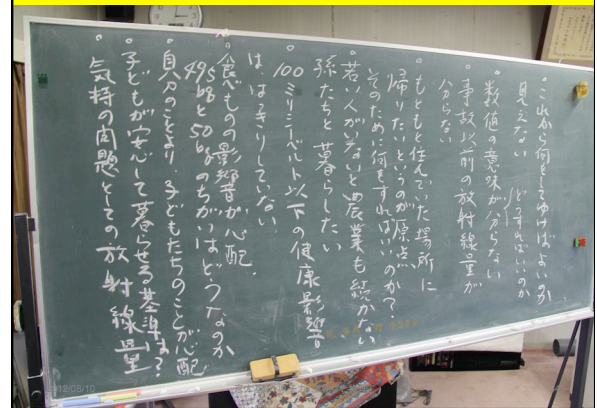 ・これから何をしてゆけばよいのか
見えない どうすればいいのか
・数値の意味が分からない
・事故以前の放射線量が
分らない
・もともと住んでいた場所に
帰りたいというのが原点
そのために何をすればいいのか?
・若い人がいないと農業も続かない
孫たちと暮らしたい
・100ミリシーベルト以下の健康影響
は、はっきりしていない
・食べものの影響が心配.
495bqと50bqのちがいはどうなのか
・自分のことより、子どもたちのことが心配
・子どもが安心して暮らせる基準は?
・気持の問題としての放射線量
12/08/10